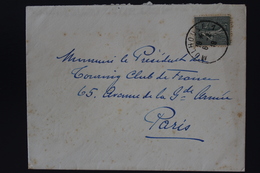 Monsieur le Président du
Touring Club de France
65, Avenue de la Gde Armée
Paris